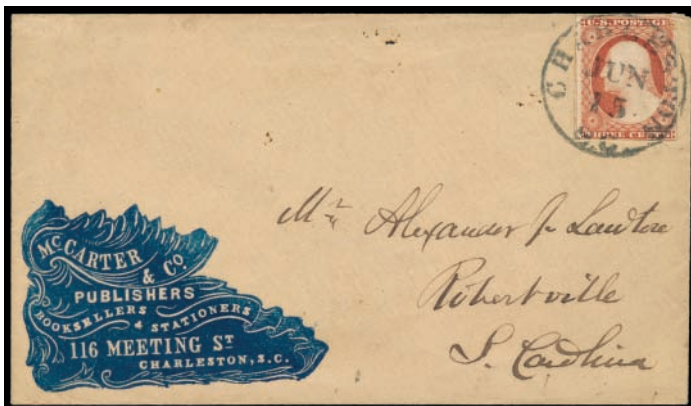 U.S. POSTAGE
THREE CENTS
CHARLESTON
JUN
15
Mr Alexander J Lawton
Robertville
S. Carolina
McCARTER
& CO.
PUBLISHERS
BOOKSELLERS & STATIONERS
116 MEETING ST
CHARLESTON, S.C.